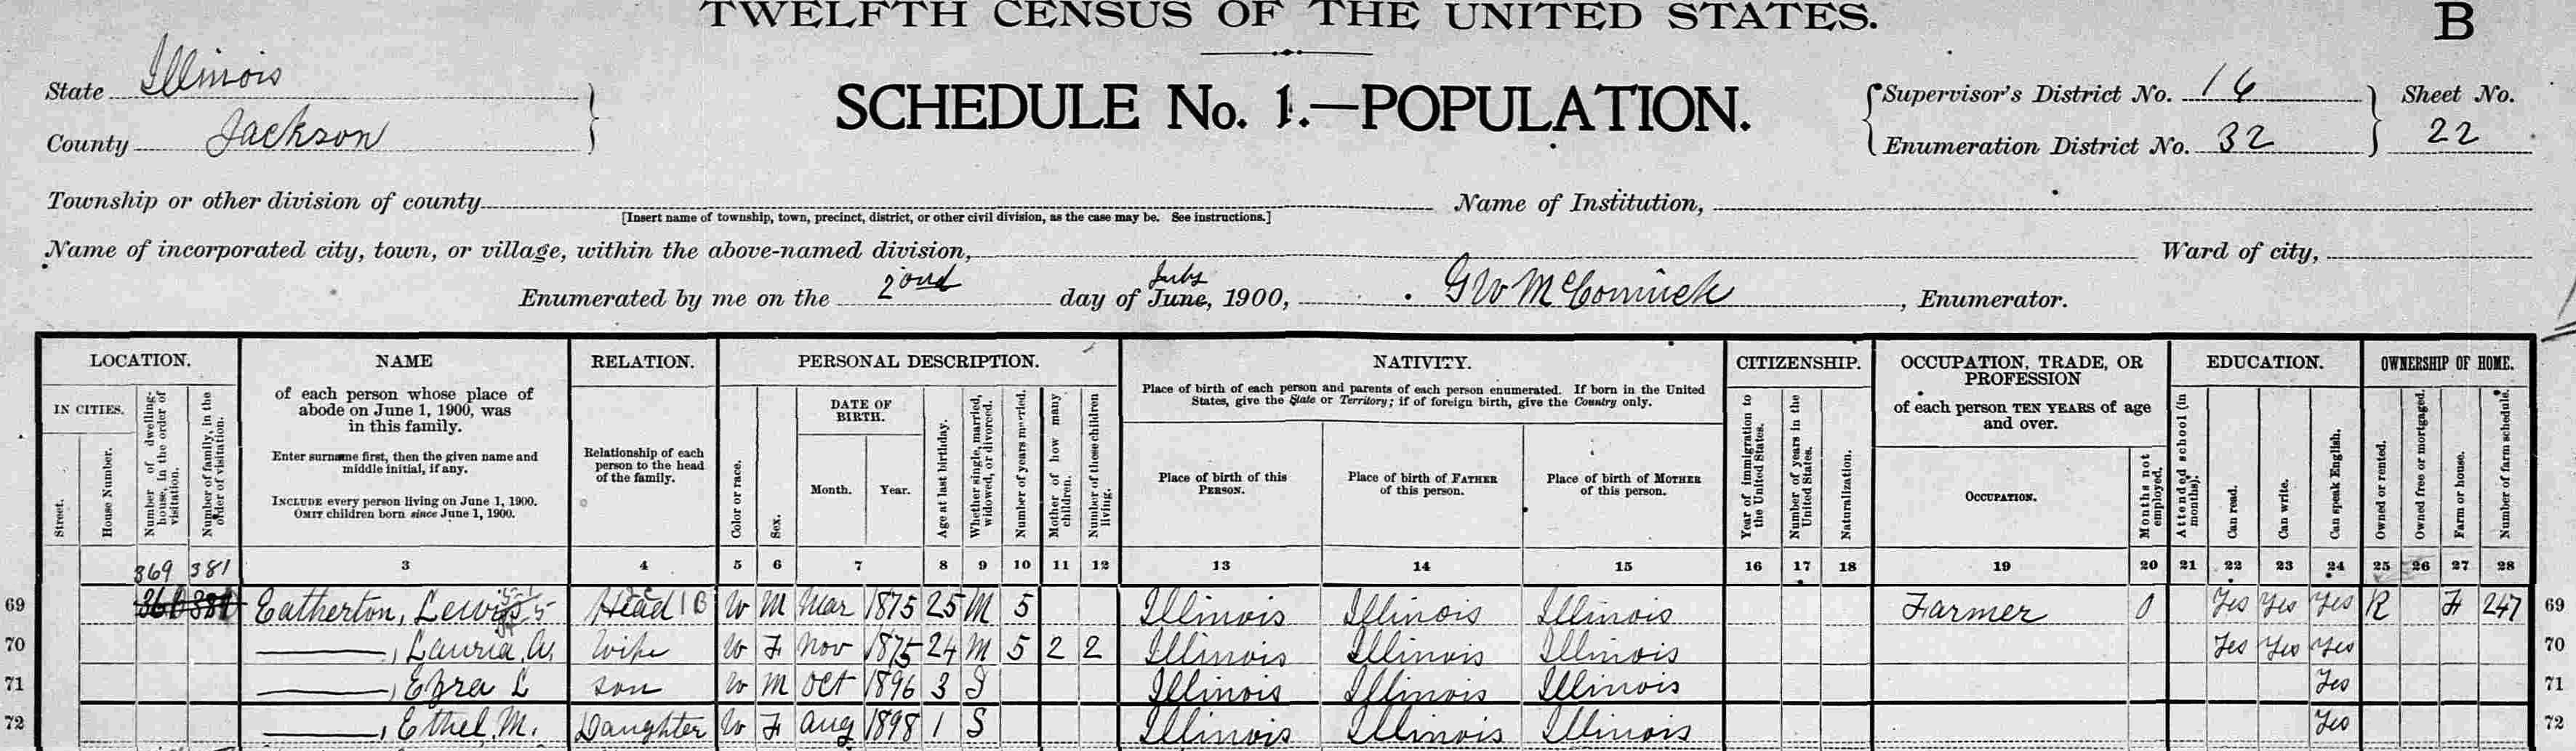 TWELFTH CENSUS OF THE UNITED STATES.
B
State Illinois
County Jackson
SCHEDULE No. 1.—POPULATION.
Supervisor's District No. 16
Enumeration District No. 32
Sheet No.
22
Township or other division of county
[Insert name of township, town, precinct, district, or other civil division, as the case may be. See instructions.]
Name of Institution,
Name of incorporated city, town, or village, within the above-named division,
Ward of city,
Enumerated by me on the 2ond day of June, 1900, GW McCormick, Enumerator.
July
LOCATION.
IN CITIES.
Street.
House Number.
Number of dwelling-house, in the order of visitation.
Number of family, in the order of visitation.
NAME
of each person whose place of abode on June 1, 1900, was in this family.
Enter surname first, then the given name and middle initial, if any.
INCLUDE every person living on June 1, 1900.
OMIT children born since June 1, 1900.
RELATION.
Relationship of each person to the head of the family.
PERSONAL DESCRIPTION.
Color or race.
Sex.
DATE OF BIRTH.
Month. Year.
Age at last birthday.
Whether single, married, widowed, or divorced.
Number of years married.
Mother of how many children.
Number of these children living.
NATIVITY.
Place of birth of each person and parents of each person enumerated. If born in the United States, give the State or Territory; if of foreign birth, give the Country only.
Place of birth of this PERSON.
Place of birth of FATHER of this person.
Place of birth of MOTHER of this person.
CITIZENSHIP.
Year of immigration to the United States.
Number of years in the United States.
Naturalization.
OCCUPATION, TRADE, OR PROFESSION
of each person TEN YEARS of age and over.
OCCUPATION.
Months not employed.
EDUCATION.
Attended school (in months).
Can read.
Can write.
Can speak English.
OWNERSHIP OF HOME.
Owned or rented.
Owned free or mortgaged.
Farm or house.
Number of farm schedule.
369 381 3 4 5 6 7 8 9 10 11 12 13 14 15 16 17 18 19 20 21 22 23 24 25 26 27 28
69 Eatherton, Lewis Head W M Mar 1875 25 M 5 Illinois Illinois Illinois Farmer 0 Yes Yes Yes R F 247 69
70 ———, Lauria A. Wife W F Nov 1875 24 M 5 2 2 Illinois Illinois Illinois Yes Yes Yes 70
71 ———, Ezra L son W M Oct 1896 3 S Illinois Illinois Illinois Yes 71
72 ———, Ethel, M. Daughter W F Aug 1898 1 S Illinois Illinois Illinois Yes 72